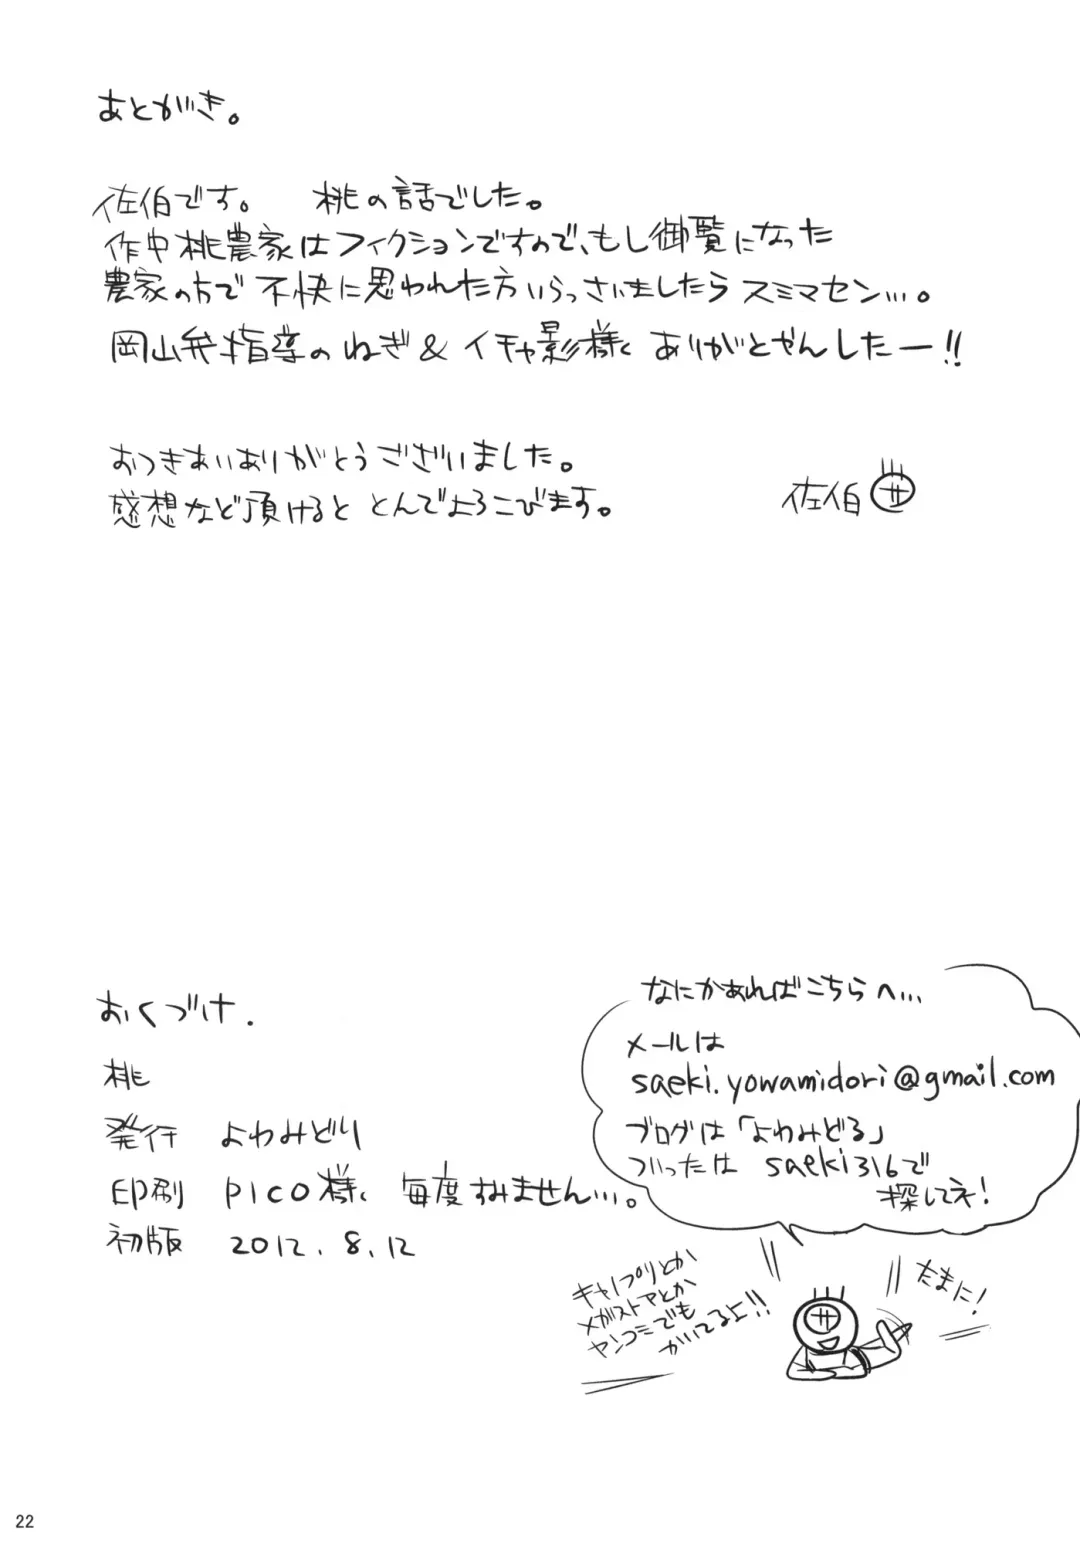 あとがき。
佐伯です。 桃の話でした。
作中桃農家はフィクションですので、もし御覧になった
農家の方で不快に思われた方いらっさいましたらスミマセン…。
岡山弁指導のねぎ&イチャ影様 ありがとやんしたー!!
おつきあいありがとうございました。
感想など頂けるととんでよろこびます。
佐伯
おくづけ.
桃
発行 よわみどり
印刷 PICO様、毎度すみません…。
初版 2012.8.12
なにかあればこちらへ…
メールは
saeki.yowamidori@gmail.com
ブログは「よわみどる」
ついったは saeki316で
探してネ!
キャノプリとか
メガストアとか
ヤンコミでも
かいてるよ!!
たまに!
22